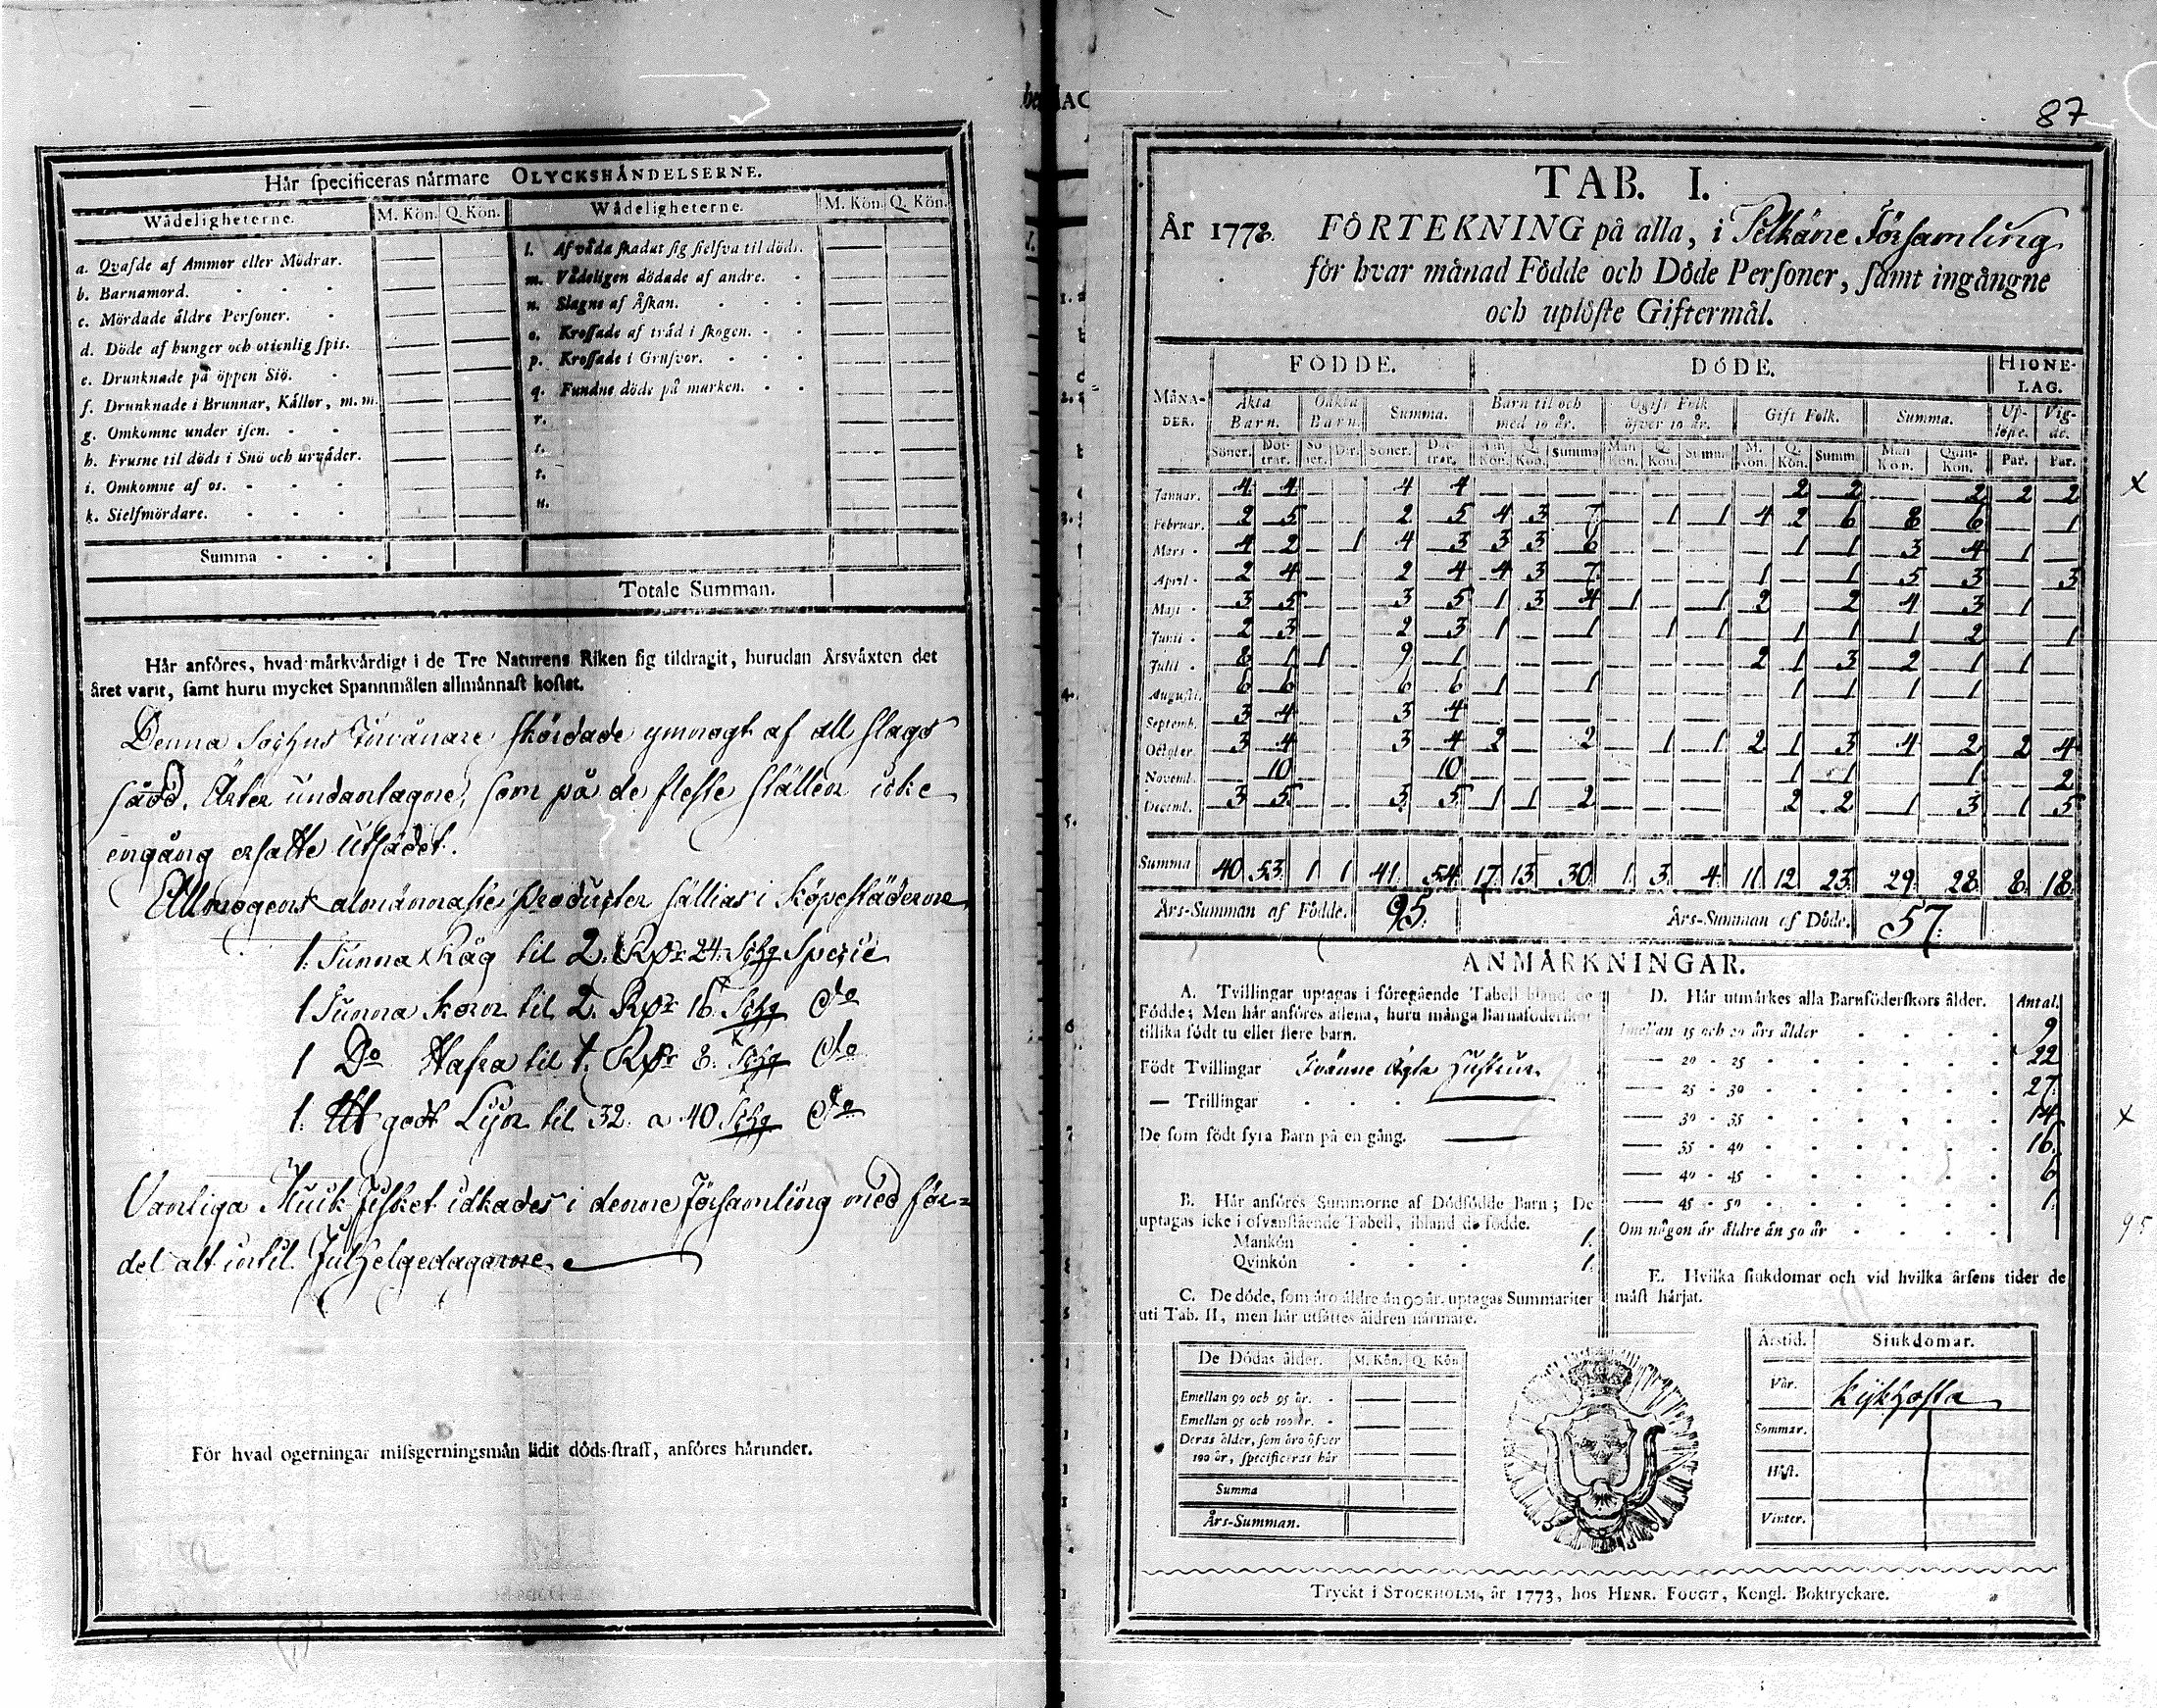 Hår specificeras nårmare OLYCKSHÅNDELSERNE.
Wådeligheterne. M. Kön. Q. Kön. Wådeligheterne. M. Kön. Q. Kön.
a. Qvafde af Ammor eller Mödrar.
b. Barnamord.
c. Mördade åldre Personer.
d. Döde af hunger och otienlig spis.
e. Drunknade på öppen Siö.
f. Drunknade i Brunnar, Kållor, m. m.
g. Omkomne under isen.
h. Frusne til döds i Snö och urvåder.
i. Omkomne af os.
k. Sielfmördare.
l. Af våda skadat sig sielfva til döds.
m. Vådeligen dödade af andre.
n. Slagne af Åskan.
o. Krossade af tråd i skogen.
p. Krossade i Grufvor.
q. Fundne döde på marken.
r.
s.
t.
u.
Summa
Totale Summan.
Hår anföres, hvad mårkvårdigt i de Tre Naturens Riken sig tildragit, hurudan Årsvåxten det
året varit, samt huru mycket Spannmålen allmånnast kostat.
Denna Sochns Invånare skördade ymnogt af all slags
säd, Ärter undantagne, som på de fleste ställen icke
engång ersatte Utsädet.
Allmogens almännaste producter sälljas i Köpestäderne
1. Tunna Råg til 2. Rdr 24. Schg Specie
1 Tunna Korn til 2. Rdr 16 Schg do
1 Do Hafra til 1. Rdr 8. Schg do
1. lb godt Lijn til 32. a 40 Schg do
Vanliga Muik fisket idkades i denne Församling med för=
del alt intil Julhelgedagarne.
För hvad ogerningar missgerningsmån lidit döds-straff, anföres hårunder.
87
TAB. I.
År 1778. FÖRTEKNING på alla, i Pelkäne Församling
för hvar månad Födde och Döde Personer, samt ingångne
och uplöste Giftermål.
MÅNADER. FÖDDE. DÖDE. HIONELAG.
Åkta Barn. Oåkta Barn. Summa. Barn til och med 10 år. Ogift Folk öfver 10 år. Gift Folk. Summa. Uplöste. Vigde.
Söner. Döttrar. Söner. Dir. Söner. Döttrar. Man Kön. Q. Kön. Summa Man Kön. Q. Kön. Summa M. Kön. Q. Kön. Summ. Man Kön. Quin-Kön. Par. Par.
Januar. 4 4 — — 4 4 — — — — — — — 2 2 — 2 2 2
Februar. 2 5 — — 2 5 4 3 7 — 1 1 4 2 6 8 6 — 1
Mars 4 2 — 1 4 3 3 3 6 — — — — 1 1 3 4 1 —
April 2 4 — — 2 4 4 3 7 — — — 1 — 1 5 3 — 3
Maji 3 5 — — 3 5 1 3 4 1 — 1 2 — 2 4 3 1 —
Junii 2 3 — — 2 3 1 — 1 — 1 1 — 1 1 1 2 — 1
Julii 8 1 1 — 9 1 — — — — — — 2 1 3 2 1 1 —
Augusti. 6 6 — — 6 6 1 — 1 — — — — 1 1 1 1 — —
Septemb. 3 4 — — 3 4 — — — — — — — — — — — — —
October. 3 4 — — 3 4 2 — 2 — 1 1 2 1 3 4 2 2 4
Novemb. — 10 — — — 10 — — — — — — — 1 1 — 1 — 2
Decemb. 3 5 — — 3 5 1 1 2 — — — — 2 2 1 3 1 5
Summa 40. 53. 1 1 41. 54. 17. 13. 30. 1. 3. 4. 11. 12. 23. 29. 28. 8. 18.
Års-Summan af Födde. 95. Års-Summan af Döde. 57.
ANMÅRKNINGAR.
A. Tvillingar uptagas i föregående Tabell bland de
Födde; Men hår anföres allena, huru många Barnaföderskor
tillika födt tu eller flere barn.
Födt Tvillingar Tvänne Ägta Hustrur.
— Trillingar
De som födt fyra Barn på en gång.
B. Hår anföres Summorne af Dödfödde Barn; De
uptagas icke i ofvanstående Tabell, ibland de födde.
Mankön 1.
Qvinkön 1.
C. De döde, som åro åldre ån 90 år, uptagas Summariter
uti Tab. II, men hår utsåttes åldren nårmare.
De Dödas ålder. M. Kön. Q. Kön
Emellan 90 och 95 år.
Emellan 95 och 100 år.
Deras ålder, som åro öfver
100 år, specificeras hår
Summa
Års-Summan.
D. Hår utmårkes alla Barnföderskors ålder. Antal.
Emellan 15 och 20 års ålder 9
— 20 - 25 22
— 25 - 30 27.
— 30 - 35 14
— 35 - 40 16.
— 40 - 45 6
— 45 - 50 1.
Om någon år åldre ån 50 år
95
E. Hvilka siukdomar och vid hvilka årsens tider de
måst hårjat.
Årstid. Siukdomar.
Vår. Kikhosta
Sommar.
Höst.
Vinter.
Tryckt i STOCKHOLM, år 1773, hos HENR. FOUGT, Kongl. Boktryckare.